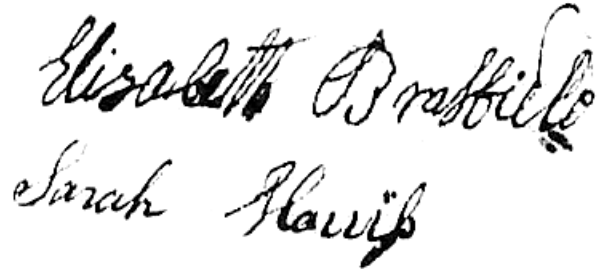 Elizabeth Braffield
Sarah Harriß